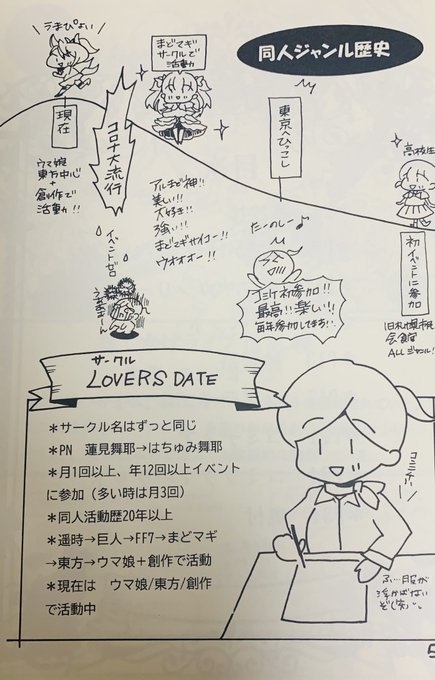 同人ジャンル歴史
高校生
初イベントに参加
旧札幌市民
会館
ALLジャンル!
東京へひっこし
たーのしー♪
コミケ初参加!!
最高!!楽しい!!
毎年参加してます!
まどマギ
サークルで
活動
アルまど神!!
美しい!!
大好き!!
強い!!
まどマギサイコー!!
ウオオオー!!
コロナ大流行
イベントゼロ
うまぴょい
現在
ウマ娘
東方中心
+
創作で
活動!!
サークル
LOVERS DATE
*サークル名はずっと同じ
*PN 蓮見舞耶→はちゅみ舞耶
*月1回以上、年12回以上イベント
に参加(多い時は月3回)
*同人活動歴20年以上
*遥時→巨人→FF7→まどマギ
→東方→ウマ娘+創作で活動
*現在は ウマ娘/東方/創作
で活動中
服が
浮かばない
ぞ(笑)
5